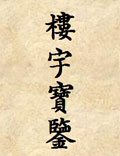 樓宇寶鑒